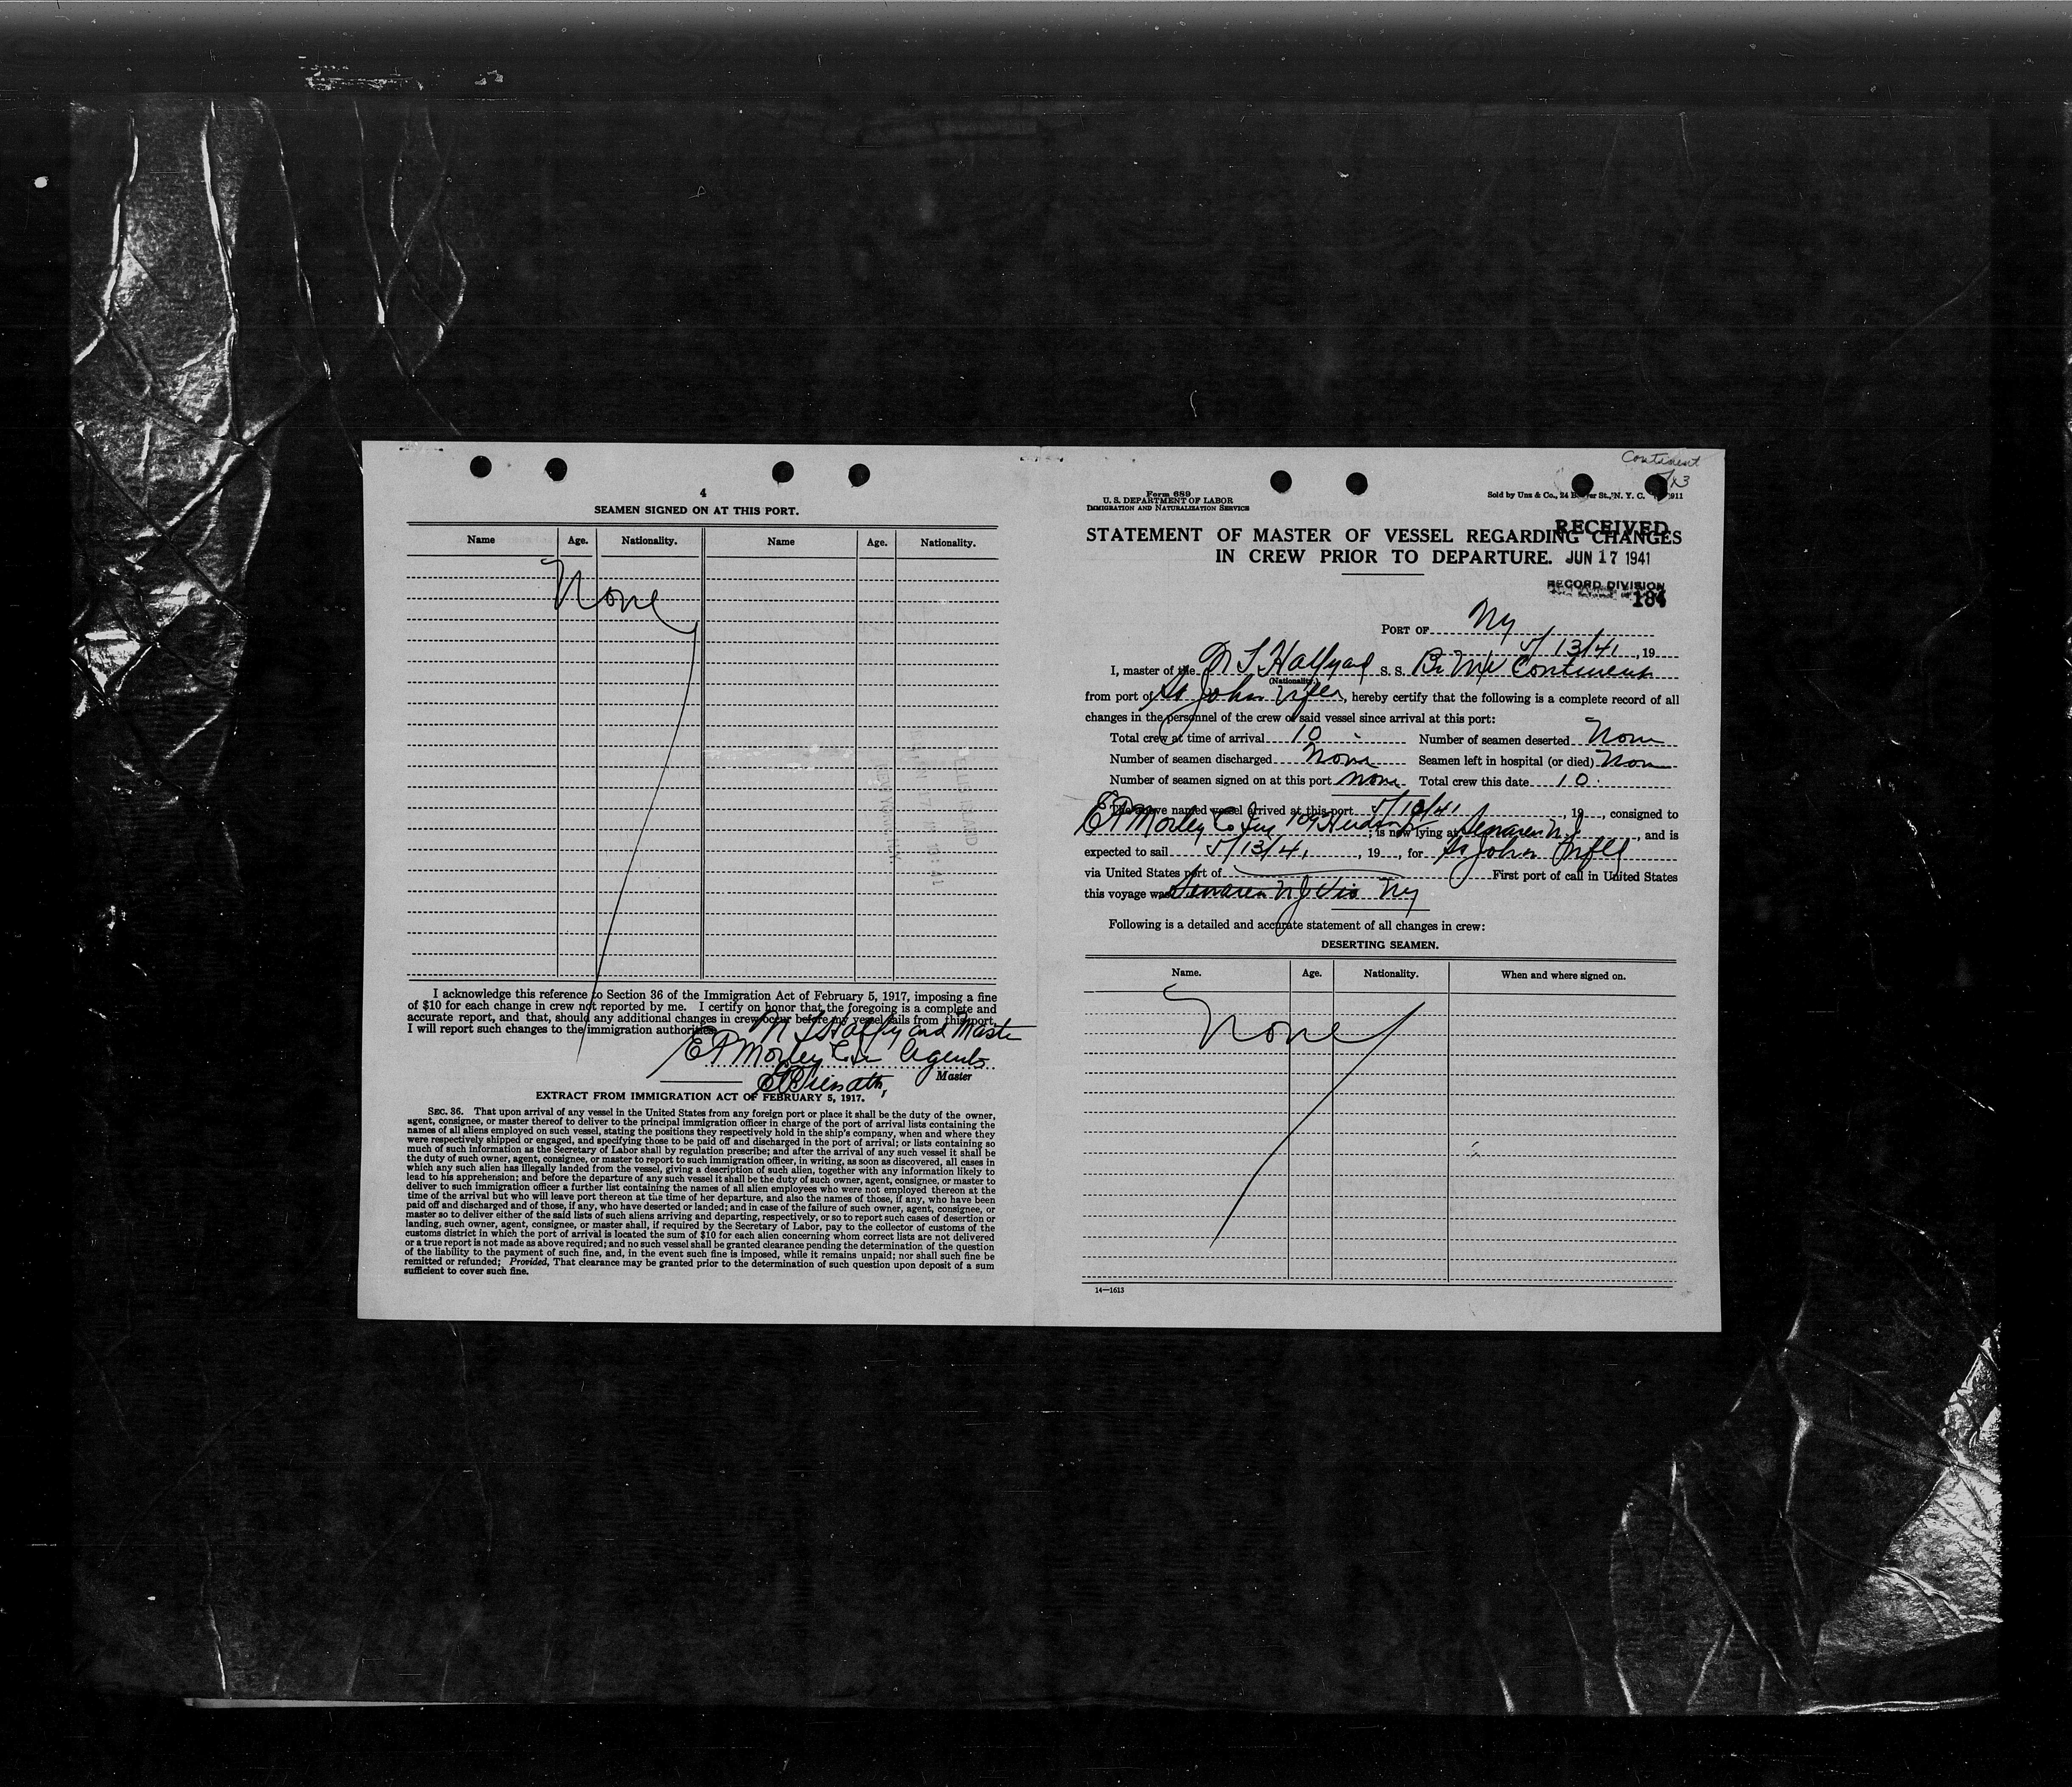 4
SEAMEN SIGNED ON AT THIS PORT.
Name Age. Nationality. Name Age. Nationality.
None
I acknowledge this reference to Section 36 of the Immigration Act of February 5, 1917, imposing a fine
of $10 for each change in crew not reported by me. I certify on honor that the foregoing is a complete and
accurate report, and that, should any additional changes in crew occur before my vessel sails from this port,
I will report such changes to the immigration authorities.
Halfyard Master
E P Morley Co Agents
Master
EXTRACT FROM IMMIGRATION ACT OF FEBRUARY 5, 1917.
SEC. 36. That upon arrival of any vessel in the United States from any foreign port or place it shall be the duty of the owner,
agent, consignee, or master thereof to deliver to the principal immigration officer in charge of the port of arrival lists containing the
names of all aliens employed on such vessel, stating the positions they respectively hold in the ship's company, when and where they
were respectively shipped or engaged, and specifying those to be paid off and discharged in the port of arrival; or lists containing so
much of such information as the Secretary of Labor shall by regulation prescribe; and after the arrival of any such vessel it shall be
the duty of such owner, agent, consignee, or master to report to such immigration officer, in writing, as soon as discovered, all cases in
which any such alien has illegally landed from the vessel, giving a description of such alien, together with any information likely to
lead to his apprehension; and before the departure of any such vessel it shall be the duty of such owner, agent, consignee, or master to
deliver to such immigration officer a further list containing the names of all alien employees who were not employed thereon at the
time of the arrival but who will leave port thereon at the time of her departure, and also the names of those, if any, who have been
paid off and discharged and of those, if any, who have deserted or landed; and in case of the failure of such owner, agent, consignee, or
master so to deliver either of the said lists of such aliens arriving and departing, respectively, or so to report such cases of desertion or
landing, such owner, agent, consignee, or master shall, if required by the Secretary of Labor, pay to the collector of customs of the
customs district in which the port of arrival is located the sum of $10 for each alien concerning whom correct lists are not delivered
or a true report is not made as above required; and no such vessel shall be granted clearance pending the determination of the question
of the liability to the payment of such fine, and, in the event such fine is imposed, while it remains unpaid; nor shall such fine be
remitted or refunded; Provided, That clearance may be granted prior to the determination of such question upon deposit of a sum
sufficient to cover such fine.
Continent
Form 689
U. S. DEPARTMENT OF LABOR
IMMIGRATION AND NATURALIZATION SERVICE
Sold by Unz & Co., 24 Beaver St., N. Y. C.
RECEIVED
STATEMENT OF MASTER OF VESSEL REGARDING CHANGES
IN CREW PRIOR TO DEPARTURE. JUN 17 1941
RECORD DIVISION
184
PORT OF Ny
5/13/41, 19
I, master of the Halfyard S. S. Br M/V Continent
(Nationality.)
from port of St John Nfld, hereby certify that the following is a complete record of all
changes in the personnel of the crew of said vessel since arrival at this port:
Total crew at time of arrival 10 Number of seamen deserted None
Number of seamen discharged None Seamen left in hospital (or died) None
Number of seamen signed on at this port None Total crew this date 10
The above named vessel arrived at this port 5/13/41, 19, consigned to
E P Morley Co Inc 109 Hudson, is now lying at Sewaren NJ, and is
expected to sail 5/13/41, 19, for St John Nfld
via United States port of First port of call in United States
this voyage was Sewaren NJ Via Ny
Following is a detailed and accurate statement of all changes in crew:
DESERTING SEAMEN.
Name. Age. Nationality. When and where signed on.
None
14—1613